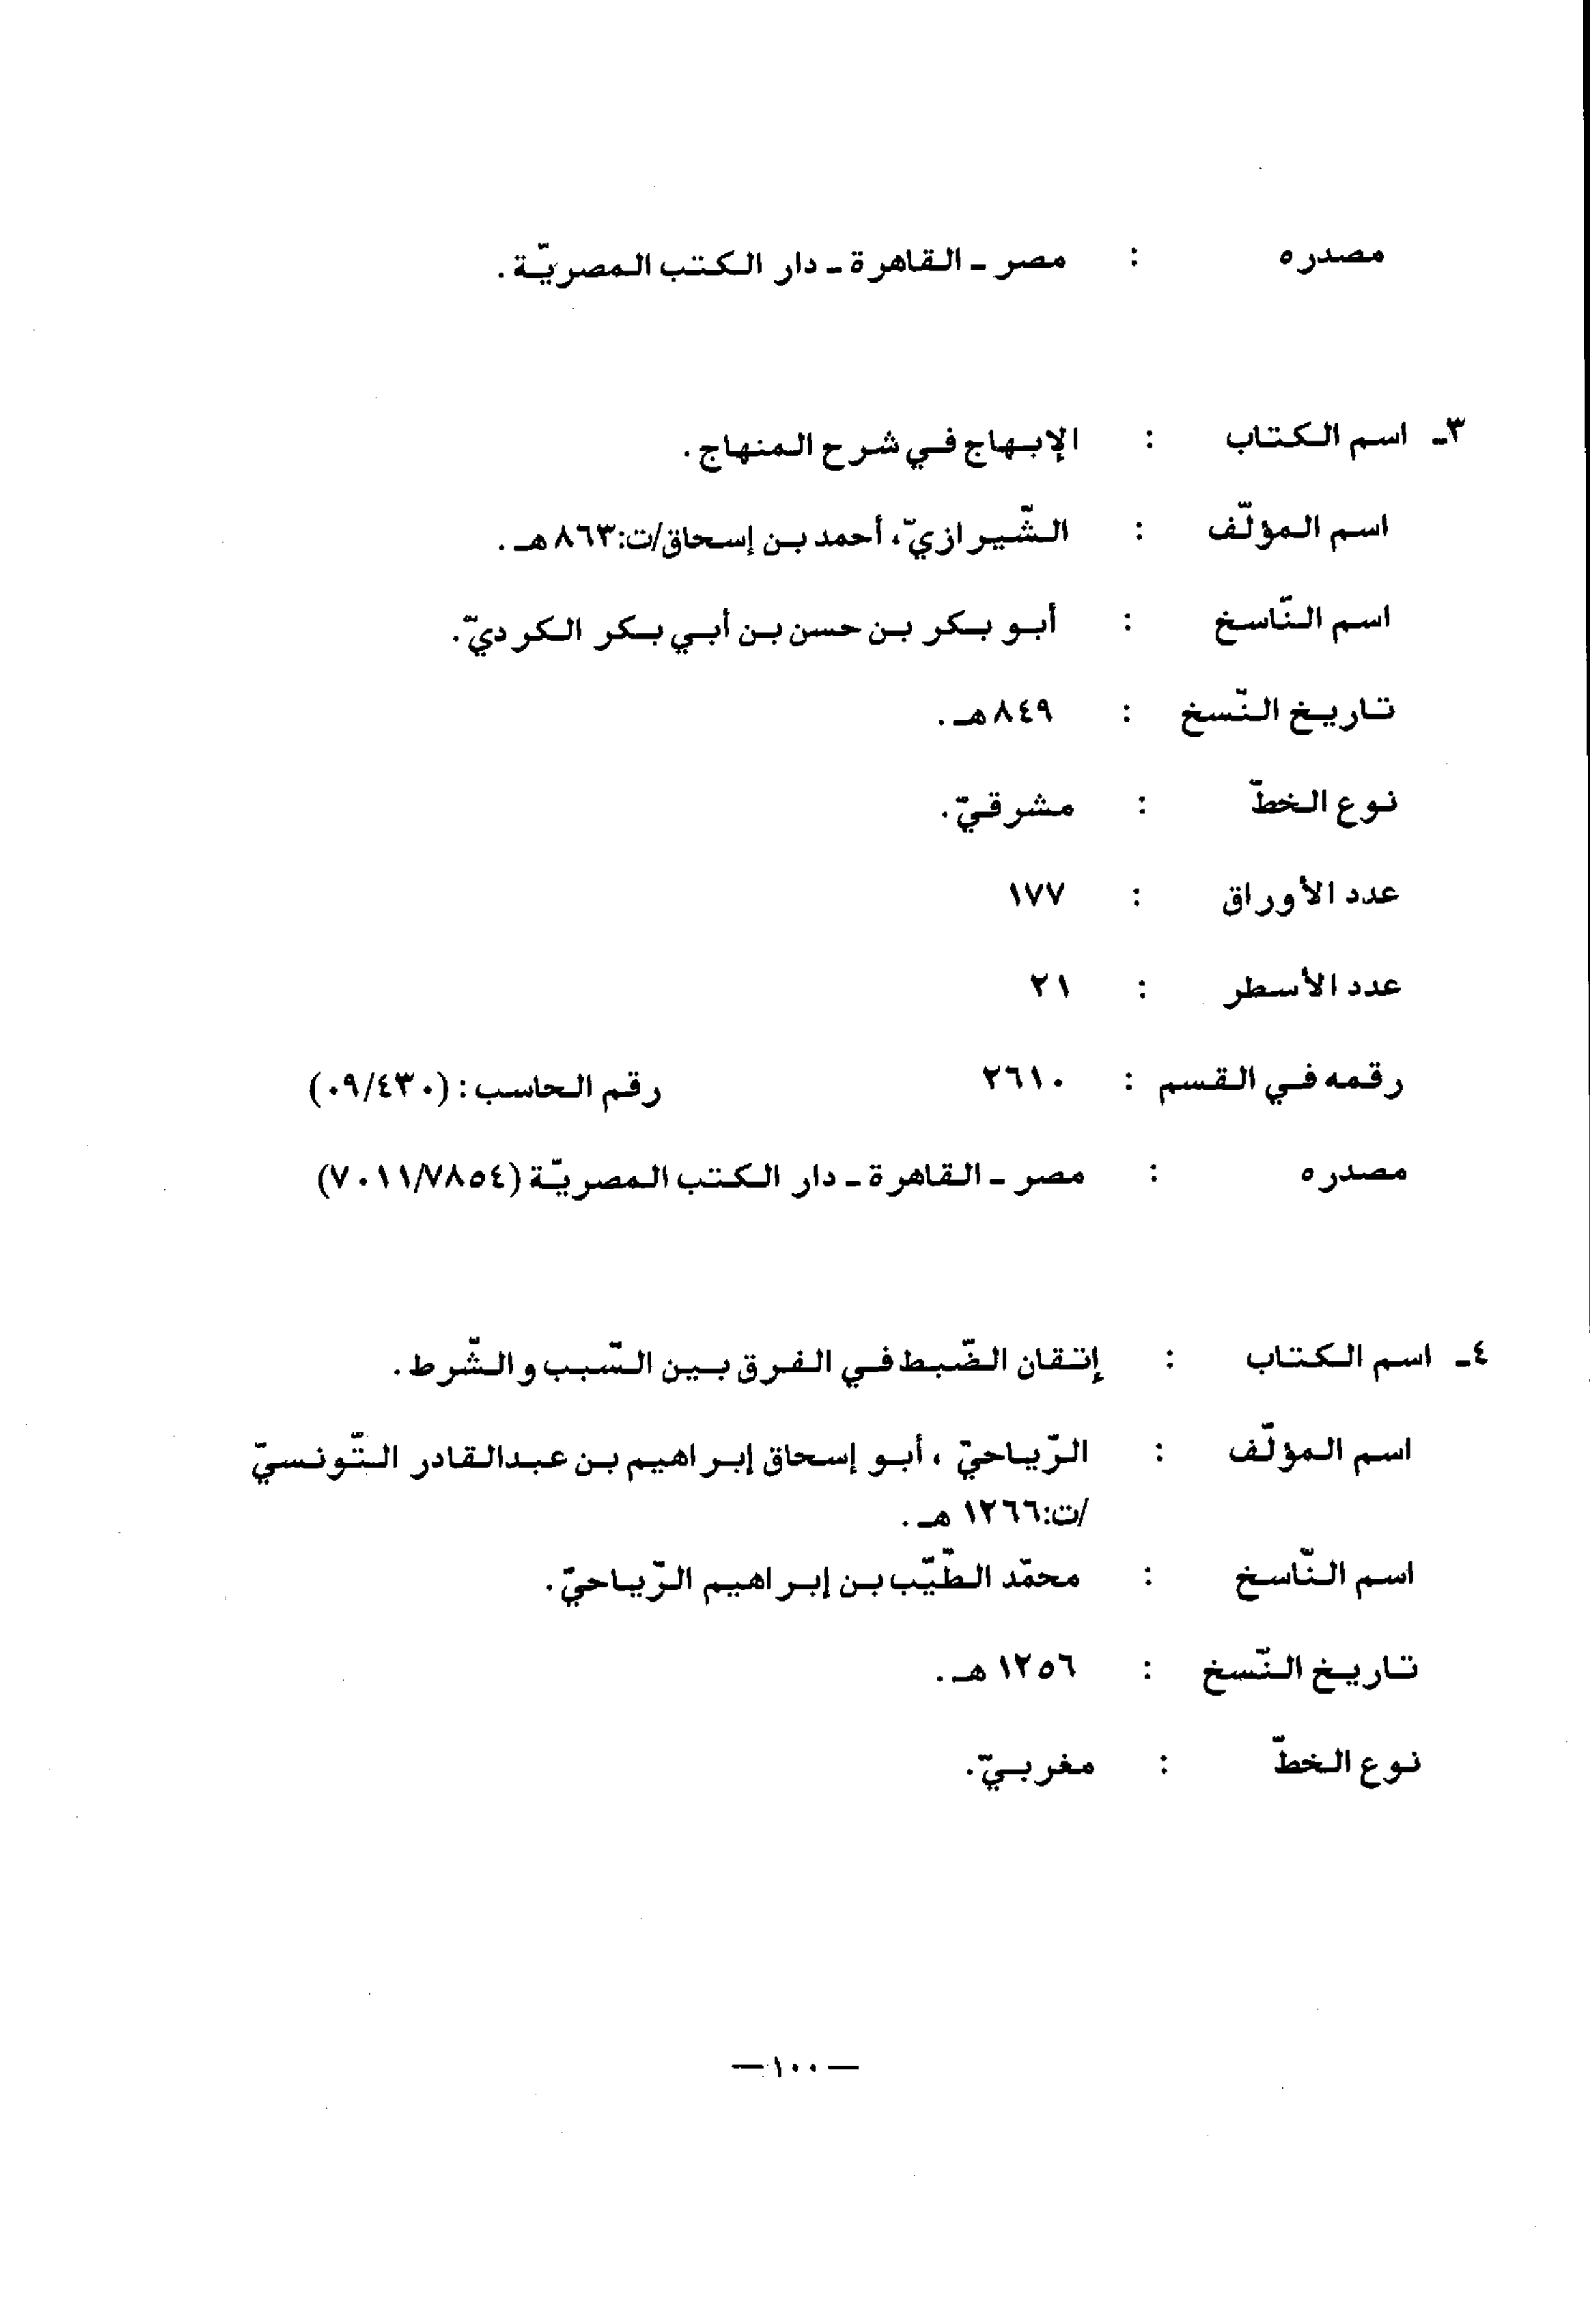 مصدره : مصر - القاهرة - دار الكتب المصريّة .
٣- اسم الكتاب : الإبهاج في شرح المنهاج .
اسم المؤلّف : الشّيرازيّ، أحمد بن إسحاق/ت:٨٦٣هـ .
اسم النّاسخ : أبو بكر بن حسن بن أبي بكر الكرديّ.
تاريخ النّسخ : ٨٤٩هـ .
نوع الخطّ : مشرقيّ.
عدد الأوراق : ١٧٧
عدد الأسطر : ٢١
رقمه في القسم : ٢٦١٠ رقم الحاسب : (٠٩/٤٣٠)
مصدره : مصر - القاهرة - دار الكتب المصريّة (٧٠١١/٧٨٥٤)
٤- اسم الكتاب : إتقان الضّبط في الفرق بين السّبب والشّرط .
اسم المؤلّف : الرّياحيّ ، أبو إسحاق إبراهيم بن عبدالقادر التّونسيّ
/ت:١٢٦٦ هـ .
اسم النّاسخ : محمّد الطّيّب بن إبراهيم الرّياحيّ.
تاريخ النّسخ : ١٢٥٦ هـ .
نوع الخطّ : مغربيّ.
—١٠٠—